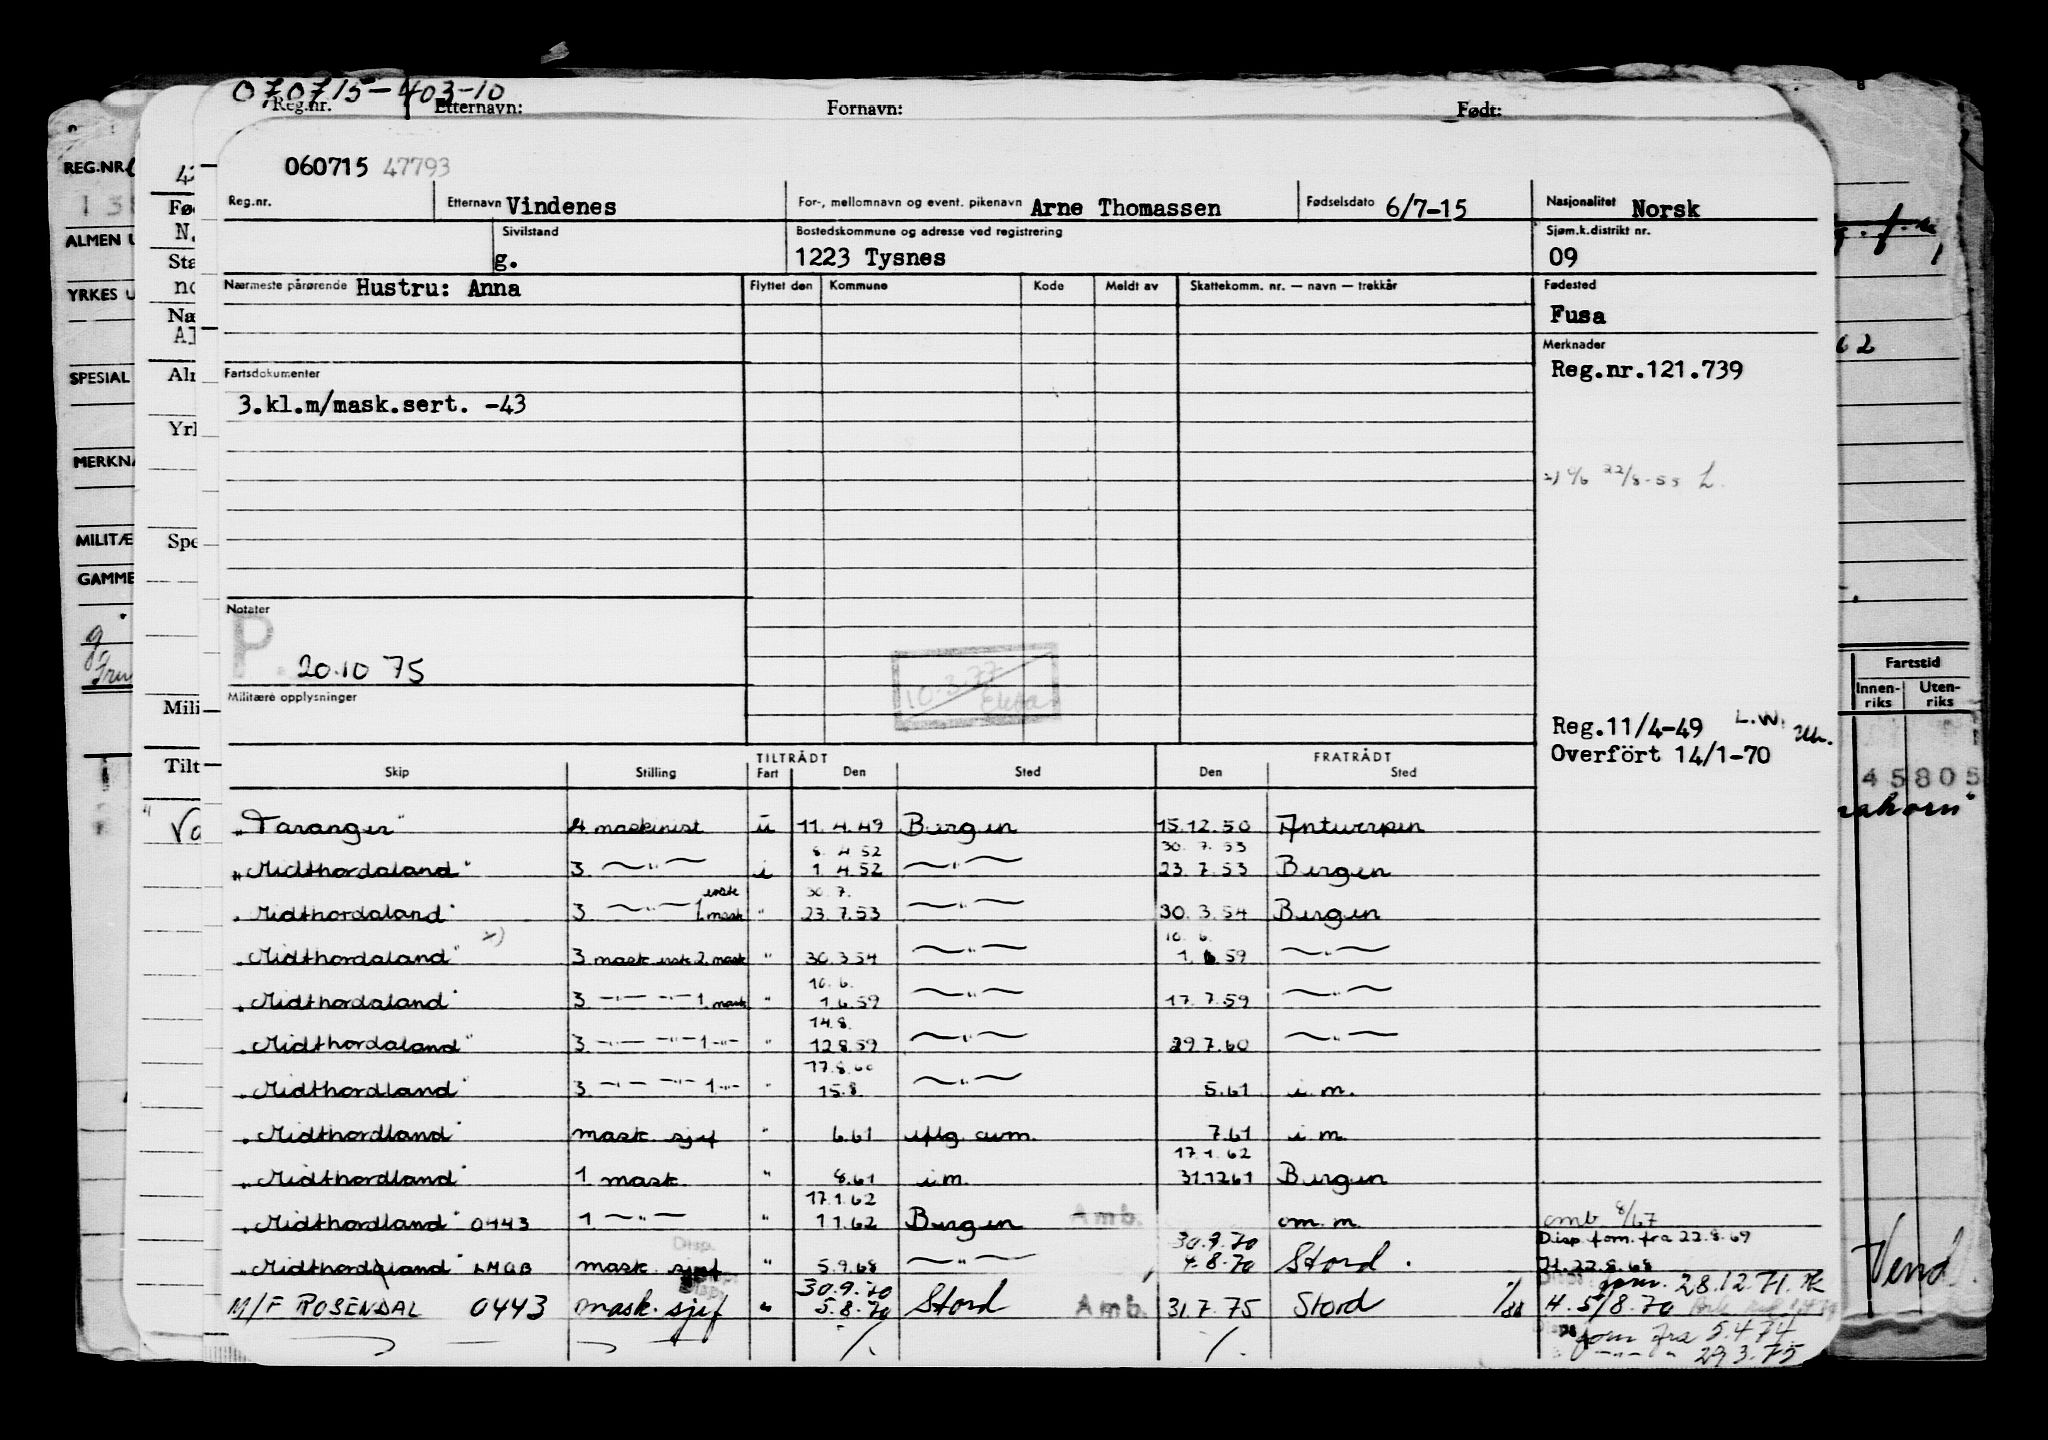 070715-403-10
Reg.nr. Etternavn: Fornavn: Født:
060715 47793
Reg.nr. Etternavn Vindenes For-, mellomnavn og event. pikenavn Arne Thomassen Fødselsdato 6/7-15 Nasjonalitet Norsk
Sivilstand g. Bostedskommune og adresse ved registrering 1223 Tysnes Sjøm.k.distrikt nr. 09
Nærmeste pårørende Hustru: Anna Flyttet den Kommune Kode Meldt av Skattekomm. nr. — navn — trekkår Fødested
Fusa
Merknader
Reg.nr.121.739
Fartsdokumenter
3.kl.m/mask.sert. -43
22/8-55 L.
Notater
P. 20.10 75
10.3.77
Militære opplysninger
Reg.11/4-49 L.W.
Overfört 14/1-70
TILTRÅDT FRATRÅDT
Skip Stilling Fart Den Sted Den Sted
"Taranger" 4 maskinist u 11.4.49 Bergen 15.12.50 Antwerpen
8. 4 52 30. 7. 53
"Midthordaland" 3. —"— i 1 4.52 —"— 23.7.53 Bergen
ensk 30. 7.
"Midthordaland" 3. —"— 1. mask " 23.7.53 —"— 30.3.54 Bergen
x) 10. 6.
"Midthordaland" 3 mask ensk 2. mask " 30.3.54 —"— 1.6.59 —"—
10. 6.
"Midthordaland" 3 —"— —"— 1. mask " 1.6.59 —"— 17.7.59 —"—
14.8.
"Midthordaland" 3. —"— —"— 1 —"— " 12.8.59 —"— 29.7.60 —"—
17.8.60
"Midthordland" 3. —"— —"— 1 —"— " 15.8. —"— 5.61 i.m.
"Midthordland" mask. sjef " 6.61 iflg. avm. 7.61 i m
17.1.62
"Midthordland" 1 mask. " 8.61 i.m. 31.12.61 Bergen
17.1.62
"Midthordland" 0443 1 —"— " 1.1.62 Bergen Amb. om. m. omb 8/67
Disp. 30.9.70 Disp fom. fra 22.8.69
"Midthordland" LMQB mask. sjef " 5.9.68 —"— 4.8.70 Stord. H.22.8.68
Disp. 30.9.70 fom. 28.12.71.
M/F ROSENDAL 0443 mask. sjef " 5.8.70 Stord Amb. 31.7.75 Stord H. 5/8.70
fom fra 5.4.74
—"— " 29 3.75
REG.NR.
ALMEN U
YRKES U
SPESIAL
MERKNA
MILITÆ
GAMME
g.
Fø
N.
Sta
Næ
Alr
Yrl
Spe
Mili
Tilt
Va
62
Fartstid
Innen-riks Uten-riks
45805
Vend.